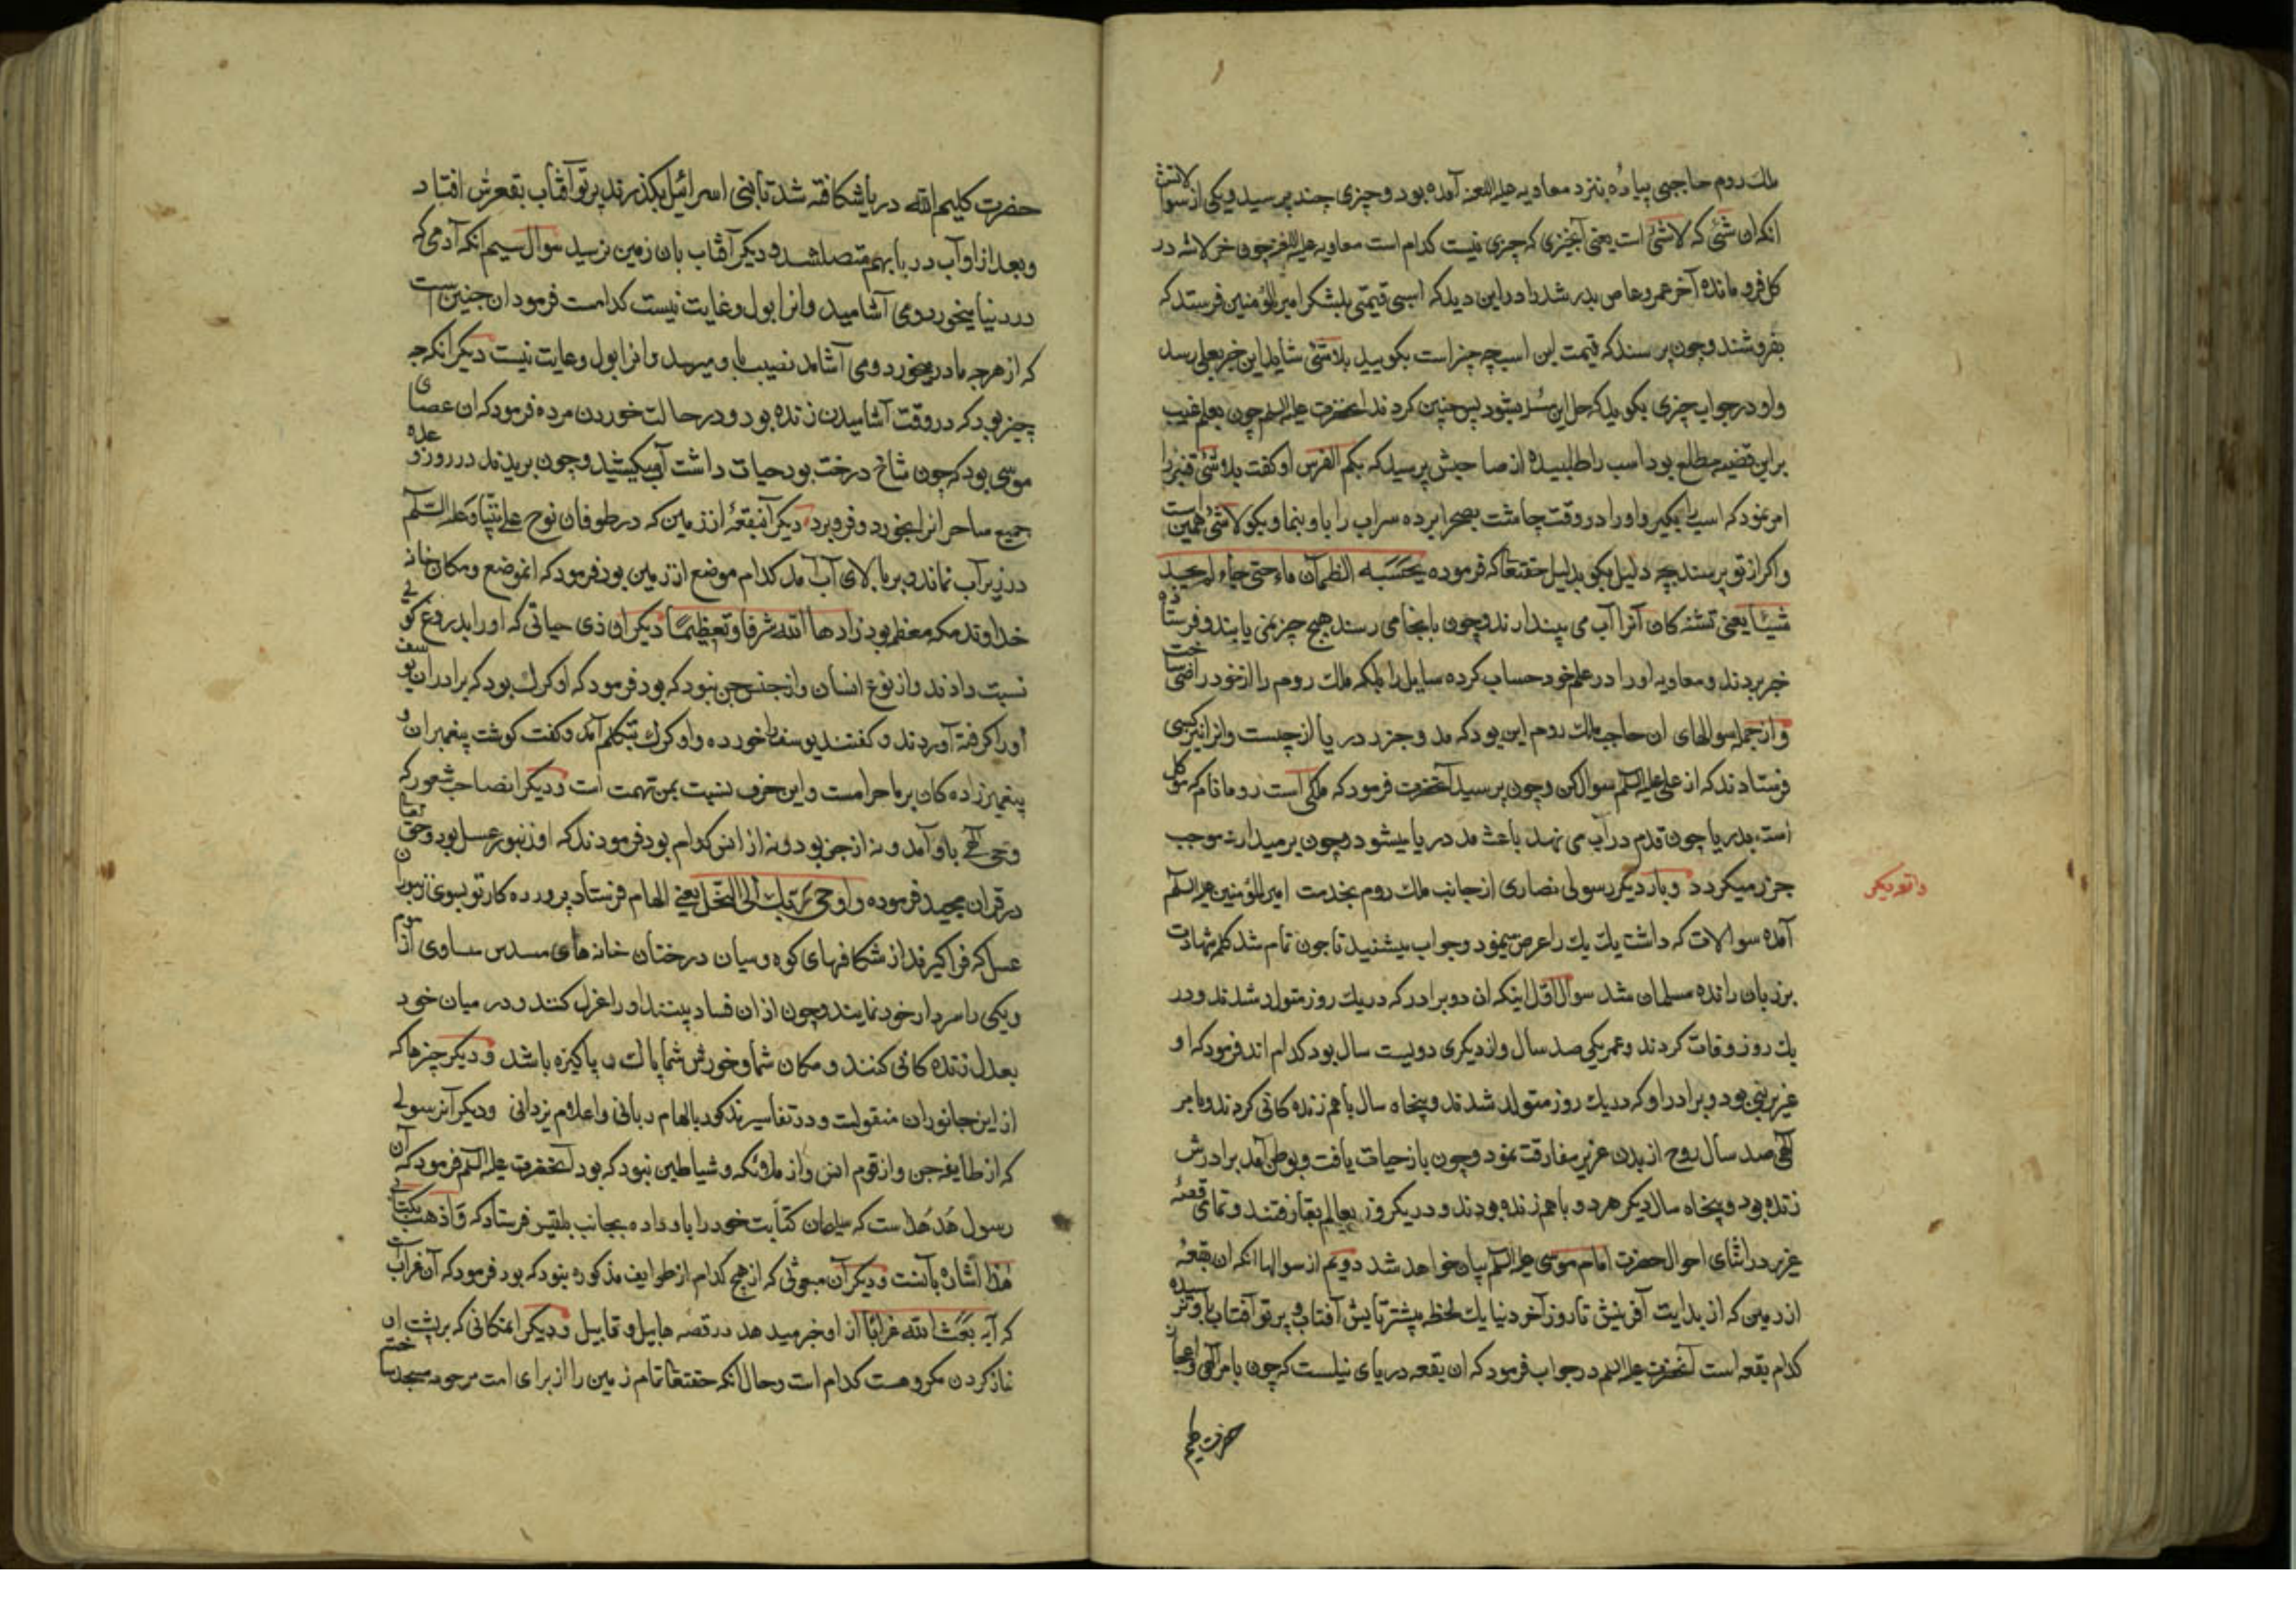 ملك روم حاجبی پیاده بنزد معاویه علیه اللعنه آمده بود و چیزی چند پرسید و یکی از سوالاتش
انکه ان شئی که لاشئ است یعنی آنچیزی که چیزی نیست کدام است معاویه علیه اللعنه چون خر لاشه در
کل فرو مانده آخر عمرو عاص بدر شد را در این دید که اسبی قیمتی بلشکر امیر المؤمنین فرستد که
بفروشند و چون پرسند که قیمت این اسب چه چیز است بگویید بلاشئ شاید این خبر بعلی رسد
و او در جواب چیزی بگوید که حل این مسئله بشود پس چنین کردند آنحضرت علیه السلم چون بعلم غیب
بر این قضیه مطلع بود اسب را طلبیده از صاحبش پرسید که بکم الفرس او گفت بلاشئ قنبر را
امر نمود که اسب را بگیر و او را در وقت چاشت بصحرا برده سراب را باو بنما و بکو لاشئ همین است
و اکر از تو پرسند بچه دلیل بکو بدلیل حقتعا که فرموده یحسبه الظمآن ماء حتی جاء لم یجد
شیئا یعنی تشنه کان آنرا آب می پندارند و چون بانجا می رسند هیچ چیز نمی یابند و فرستاده
خبر بردند و معاویه او را در علم خود حساب کرده سایل را بلکه ملك روم را از خود راضی ساخت
و از جمله سوالهای ان حاجب ملك روم این بود که مد و جزر دریا از چیست و انرا نیز کسی
فرستادند که از علی علیه السلم سوال کن و چون پرسید آنحضرت فرمود که ملکی است رومانام که موکل
است بدریا چون قدم در آب می نهد باعث مد دریا میشود و چون برمیدارد موجب
جزر میکردد و بار دیکر رسولی نصاری از جانب ملك روم بخدمت امیر المؤمنین علیه السلم
آمده سوالات که داشت یك یك را عرض مینمود و جواب میشنید تا چون تمام شد کلمه شهادت
بر زبان رانده مسلمان شد سوال اول اینکه ان دو برادر که در یك روز متولد شدند و در
یك روز وفات کردند و عمر یکی صد سال و از دیکری دویست سال بود کدام اند فرمود که او
عزیر نبی بود و برادر او که در یك روز متولد شدند و پنجاه سال با هم زنده کانی کردند و بامر
الهی صد سال روح از بدن عزیر مفارقت نمود و چون باز حیات یافت و بوطن آمد برادرش
زنده بود و پنجاه سال دیکر هر دو با هم زنده بودند و در یکروز بعالم بقا رفتند و تمامی قصه
عزیر در اثنای احوال حضرت امام موسی علیه السلم بیان خواهد شد دویم از سوالها انکه ان بقعه
از زمین که از بدایت آفرینش تا روز آخر دنیا یك لحظه بیشتر تابش آفتاب و پرتو آفتاب باو نرسیده
کدام بقعه است آنحضرت علیه السلم در جواب فرمود که ان بقعه دریای نیلست که چون بامر الهی و اعجاز
حضرت کلیم
حضرت کلیم الله دریا شکافته شد تا بنی اسرائیل بکذرند پرتو آفتاب بقعرش افتاد
و بعد از او آب دریا بهم متصل شد و دیکر آفتاب بان زمین نرسید سوال سیم انکه آدمی که
در دنیا میخورد و می آشامید و انرا بول و غایت نیست کدامست فرمود ان جنین است
که از هر چه مادر میخورد و می آشامد نصیب باو میرسد و انرا بول و غایت نیست دیکر انکه چه
چیز بود که در وقت آشامیدن زنده بود و در حالت خوردن مرده فرمود که ان عصای
موسی بود که چون شاخ درخت بود حیات داشت آب میکشید و چون بریدند در روز وعده
جمیع ساحر انرا بخورد و فرو برد دیکر آنبقعه از زمین که در طوفان نوح علی نبینا و علیه السلم
در زیر آب نماند و بر بالای آب آمد کدام موضع از زمین بود فرمود که انموضع و مکان خانه
خداوند مکه معظم بود زادها الله شرفا و تعظیما دیکر ان ذی حیاتی که او را بدروغ کوئی
نسبت دادند و از نوع انسان و از جنس جن نبود که بود فرمود که او کرك بود که برادران یوسف
او را کرفته آوردند و کفتند یوسف را خورده و او کرك بتکلم آمد و کفت کوشت پیغمبران و
پیغمبر زاده کان بر ما حرامست و این حرف نسبت بمن تهمت است و دیکر انصاحب شعور که
وحی الهی باو آمد و نه از جن بود و نه از انس کدام بود فرمودند که او زنبور عسل بود و حق تعالی
در قران مجید فرموده و اوحی ربك الی النحل یعنی الهام فرستاد پرورده کار تو بسوی زنبوران
عسل که فراکیرند از شکافهای کوه و میان درختان خانه های مسدس مساوی از موم
و یکی را سردار خود نمایند و چون از ان فساد بینند او را عزل کنند و در میان خود
بعدل زنده کانی کنند و مکان شما و خورش شما پاك و پاکیزه باشد و دیکر چیزها که
از این جانوران منقولست و در تفاسیر مذکور بالهام ربانی و اعلام یزدانی و دیکر آنرسولی
که از طایفه جن و از قوم انس و از ملائکه و شیاطین نبود که بود آنحضرت علیه السلم فرمود که آن
رسول هدهد است که سلیمان کتابت خود را باو داده بجانب بلقیس فرستاد که و اذهب بکتابی
هذا اشاره بآنست و دیکر آن مبعوثی که از هیچ کدام از طوایف مذکوره نبود که بود فرمود که آن غرابست
که آیه بعث الله غرابا از او خبر میدهد در قصه هابیل و قابیل و دیکر انمکانی که بر پشت ان
نماز کردن مکروهست کدام است و حال انکه حقتعا تمام زمین را از برای امت مرحومه مسجد ساخته